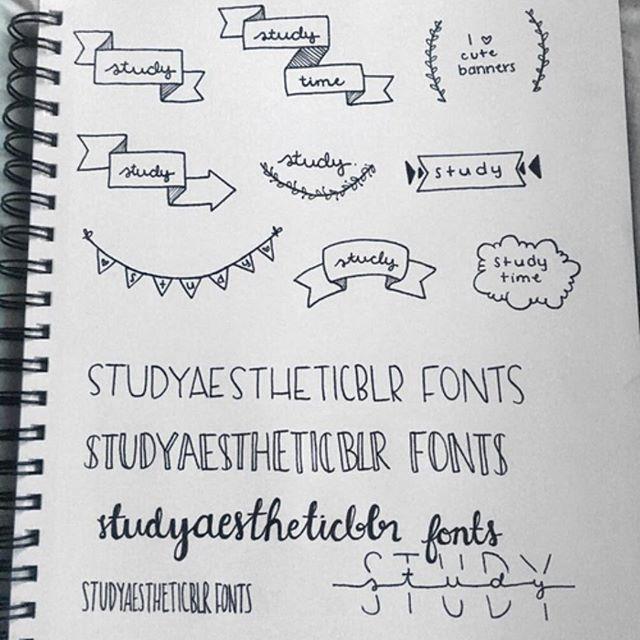 study
study
time
I ♡
cute
banners
study
study.
study
♡ study ♡
study
study
time
STUDYAESTHETICBLR FONTS
STUDYAESTHETICBLR FONTS
studyaestheticblr fonts
STUDYAESTHETICBLR FONTS
STUDY
study